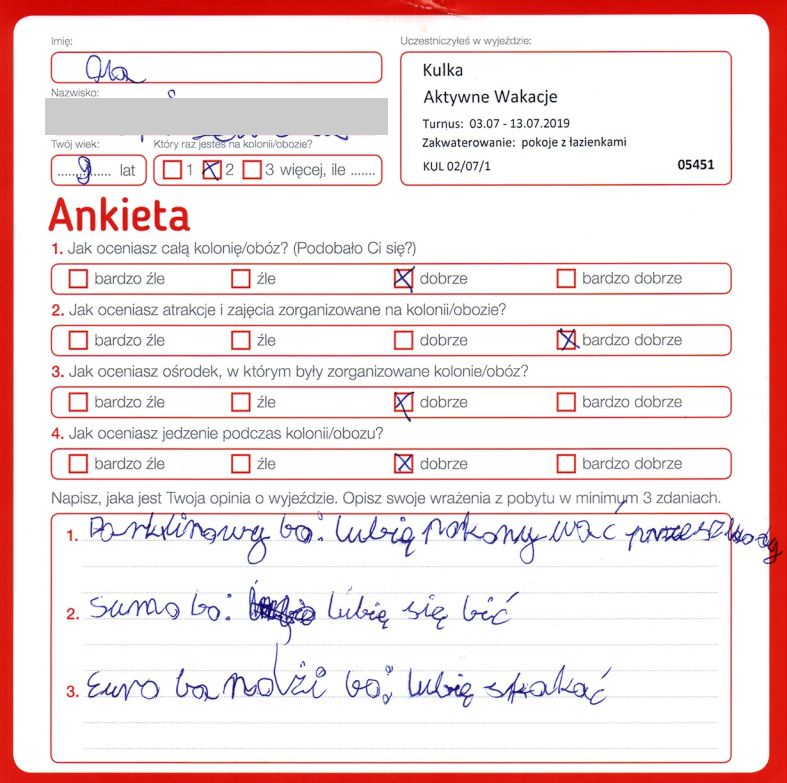 Imię:
Ola
Nazwisko:
Twój wiek:
9 lat
Który raz jesteś na kolonii/obozie?
1 2 3 więcej, ile .......
Uczestniczyłeś w wyjeździe:
Kulka
Aktywne Wakacje
Turnus: 03.07 - 13.07.2019
Zakwaterowanie: pokoje z łazienkami
KUL 02/07/1 05451
Ankieta
1. Jak oceniasz całą kolonię/obóz? (Podobało Ci się?)
bardzo źle źle dobrze bardzo dobrze
2. Jak oceniasz atrakcje i zajęcia zorganizowane na kolonii/obozie?
bardzo źle źle dobrze bardzo dobrze
3. Jak oceniasz ośrodek, w którym były zorganizowane kolonie/obóz?
bardzo źle źle dobrze bardzo dobrze
4. Jak oceniasz jedzenie podczas kolonii/obozu?
bardzo źle źle dobrze bardzo dobrze
Napisz, jaka jest Twoja opinia o wyjeździe. Opisz swoje wrażenia z pobytu w minimum 3 zdaniach.
1. Parklinowy bo: lubię pokony wać przeszkody
2. Sumo bo: lubię się bić
3. Euro ba ndźi bo: lubię skakać